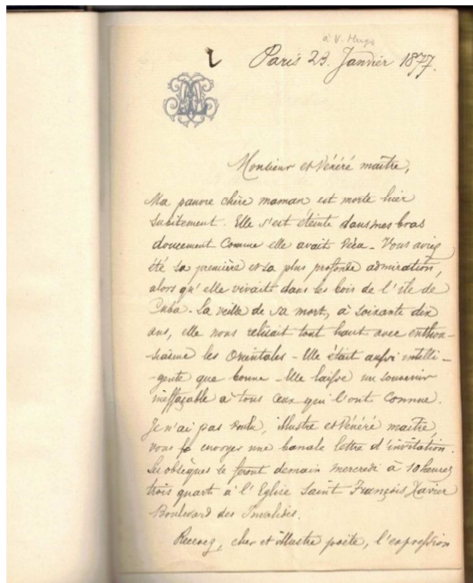 à V. Hugo
Paris 23. Janvier 1877.
Monsieur et vénéré maître,
Ma pauvre chère maman est morte hier
subitement. Elle s'est éteinte dans mes bras
doucement comme elle avait vécu - Vous aviez
été sa première et sa plus profonde admiration,
alors qu'elle vivait dans les bois de l'île de
Cuba. La veille de sa mort, à soixante dix
ans, elle nous relisait tout haut avec enthou-
-siasme les Orientales - Elle était aussi intelli-
-gente que bonne - Elle laisse un souvenir
ineffaçable à tous ceux qui l'ont connue.
Je n'ai pas voulu, illustre et vénéré maître
vous envoyer une banale lettre d'invitation.
Les obsèques se feront demain mercredi à 10 heures
trois quart à l'Eglise Saint François Xavier
Boulevard des Invalides.
Recevez, cher et illustre poète, l'expression